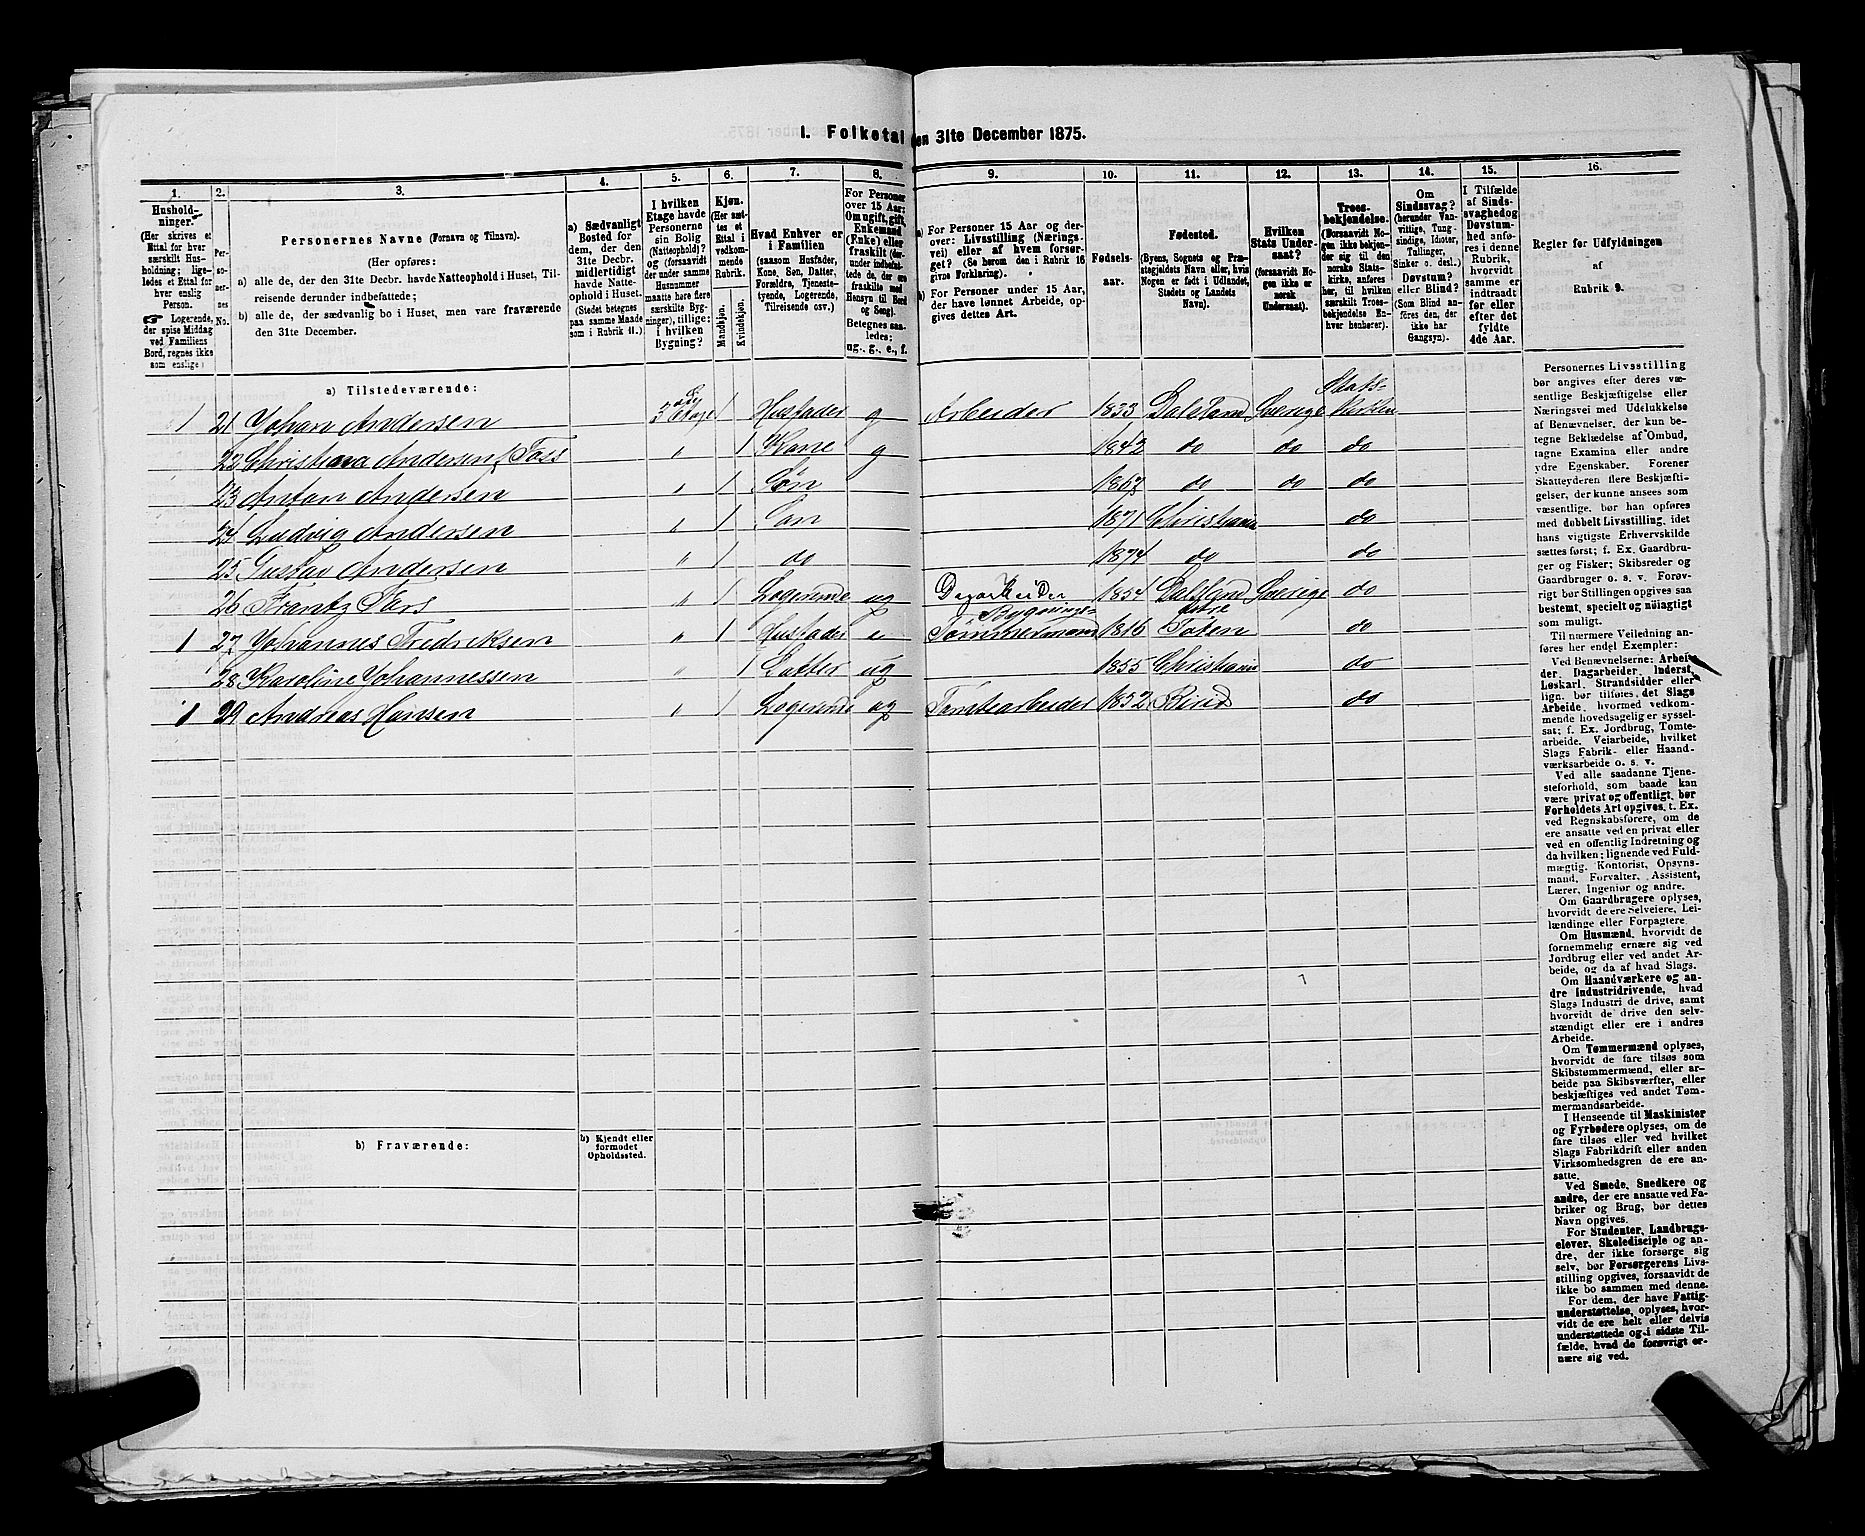 1. Folketal den 31te December 1875.
1.
2.
3.
4.
5.
6.
7.
8.
9.
10.
11.
12.
13.
14.
15.
16.
Hushold-
ninger.
(Her skrives et
Ettal for hver
særskilt Hus-
holdning; lige-
ledes et Ettal for
hver enslig
Person.
☞ Logerende,
der spise Middag
ved Familiens
Bord, regnes ikke
som enslige)
Per-
so-
ner-
nes
No.
Personernes Navne (Fornavn og Tilnavn).
(Her opføres:
a) alle de, der den 31te Decbr. havde Natteophold i Huset, Til-
reisende derunder indbefattede;
b) alle de, der sædvanlig bo i Huset, men vare fraværende
den 31te December.
a) Sædvanligt
Bosted for
dem, der den
31te Decbr.
midlertidigt
havde Natte-
ophold i Huset.
(Stedet betegnes
paa samme Maade
som i Rubrik 11.)
I hvilken
Etage havde
Personerne
sin Bolig
(Natteophold)?
og (forsaavidt
der under samme
Husnummer
maatte høre flere
særskilte Byg-
ninger), tillige:
i hvilken
Bygning?
Kjøn.
(Her sæt-
tes et
Ettal i
vedkom-
mende
Rubrik.
Mandkjøn.
Kvindekjøn.
Hvad Enhver er
i Familien
(saasom Husfader,
Kone, Søn, Datter,
Forældre, Tjeneste-
tyende, Logerende,
Tilreisende osv.)
For Personer
over 15 Aar:
Om ugift, gift,
Enkemand
(Enke) eller
fraskilt (der-
under indbefat-
tede de, der ere
fraskilte med
Hensyn til Bord
og Seng).
Betegnes saa-
ledes:
ug., g., e., f.
a) For Personer 15 Aar og der-
over: Livsstilling (Nærings-
vei) eller af hvem forsør-
get? (Se herom den i Rubrik 16
givne Forklaring).
b) For Personer under 15 Aar,
der have lønnet Arbeide, op-
gives dettes Art.
Fødsels-
aar.
Fødested.
(Byens, Sognets og Præ-
stegjeldets Navn eller, hvis
Nogen er født i Udlandet,
Stedets og Landets
Navn).
Hvilken
Stats Under-
saat?
(forsaavidt No-
gen ikke er
norsk
Undersaat).
Troes-
bekjendelse.
(Forsaavidt No-
gen ikke bekjen-
der sig til den
norske Stats-
kirke, anføres
her, til hvilken
særskilt Troes-
bekjendelse En-
hver henhører).
Om
Sindssvag?
(herunder Van-
vittige, Tung-
sindige, Idioter,
Tullinger,
Sinker o. desl.).
Døvstum?
eller Blind?
(Som Blind an-
føres den, der
ikke har
Gangsyn).
I Tilfælde
af Sinds-
svaghed og
Døvstum-
hed anfø-
res i denne
Rubrik,
hvorvidt
samme er
indtraadt
før eller
efter det
fyldte
4de Aar.
Regler for Udfyldningen
af
Rubrik 9.
a) Tilstedeværende:
1 21 Yohan Andersen 3 Etage 1 Husfader g Arbeider 1833 Dalsland Sverige Stats-
kirken
22 Christiana Andersen f Foss " 1 Kone g 1842 do do do
23 Anton Andersen " 1 Søn 1867 do do do
24 Ludvig Andersen " 1 Søn 1871 Christiania do
25 Gustav Andersen " 1 do 1874 do do
26 Frantz Fars " 1 Logerende ug Dagarbeider 1854 Dalsland Sverige do
1 27 Yohannes Fredriksen " 1 Husfader e Bygnings-
Tømmermand 1816 Østre
Toten do
28 Karoline Yohannessen " 1 Datter ug 1855 Christiania do
1 29 Andreas Hansen " 1 Logerende ug Tomtearbeider 1852 Birid do
b) Fraværende:
b) Kjendt eller
formodet
Opholdssted.
Personernes Livsstilling
bør angives efter deres væ-
sentlige Beskjæftigelse eller
Næringsvei med Udelukkelse
af Benævnelser, der kun be-
tegne Beklædelse af Ombud,
tagne Examina eller andre
ydre Egenskaber. Forener
Skatteyderen flere Beskjæfti-
gelser, der kunne ansees som
væsentlige, bør han opføres
med dobbelt Livsstilling, idet
hans vigtigste Erhvervskilde
sættes først; f. Ex. Gaardbru-
ger og Fisker; Skibsreder og
Gaardbruger o. s. v. Forøv-
rigt bør Stillingen opgives saa
bestemt, specielt og nøiagtigt
som muligt.
Til nærmere Veiledning an-
føres her endel Exempler:
Ved Benævnelserne: Arbei-
der, Dagarbeider, Inderst,
Løskarl, Strandsidder eller
lign. bør tilføies, det Slags
Arbeide, hvormed vedkom-
mende hovedsagelig er syssel-
sat; f. Ex. Jordbrug, Tomte-
arbeide, Veiarbeide, hvilket
Slags Fabrik- eller Haand-
værksarbeide o. s. v.
Ved alle saadanne Tjene-
steforhold, som baade kan
være privat og offentligt, bør
Forholdets Art opgives, t. Ex.
ved Regnskabsførere, om de
ere ansatte ved en privat eller
ved en offentlig Indretning og
da hvilken; lignende ved Fuld-
mægtig, Kontorist, Opsyns-
mand, Forvalter, Assistent,
Lærer, Ingeniør og andre.
Om Gaardbrugere oplyses,
hvorvidt de ere Selveiere, Lei-
lændinge eller Forpagtere.
Om Husmænd, hvorvidt de
fornemmelig ernære sig ved
Jordbrug eller ved andet Ar-
beide, og da af hvad Slags.
Om Haandværkere og an-
dre Industridrivende, hvad
Slags Industri de drive, samt
hvorvidt de drive den selv-
stændigt eller ere i andres
Arbeide.
Om Tømmermænd oplyses,
hvorvidt de fare tilsøs som
Skibstømmermænd, eller ar-
beide paa Skibsværfter, eller
beskjæftiges ved andet Tøm-
mermandsarbeide.
I Henseende til Maskinister
og Fyrbødere oplyses, om de
fare tilsøs eller ved hvilket
Slags Fabrikdrift eller anden
Virksomhedsgren de ere an-
satte.
Ved Smede, Snedkere og
andre, der ere ansatte ved Fa-
briker og Brug, bør dettes
Navn opgives.
For Studenter, Landbrugs-
elever, Skoledisciple og an-
dre, der ikke forsørge sig
selv, bør Forsørgerens Livs-
stilling opgives, forsaavidt de
ikke bo sammen med denne.
For dem, der have Fattig-
understøttelse, oplyses, hvor-
vidt de ere helt eller delvis
understøttede og i sidste Til-
fælde, hvad de forøvrigt er-
nære sig ved.